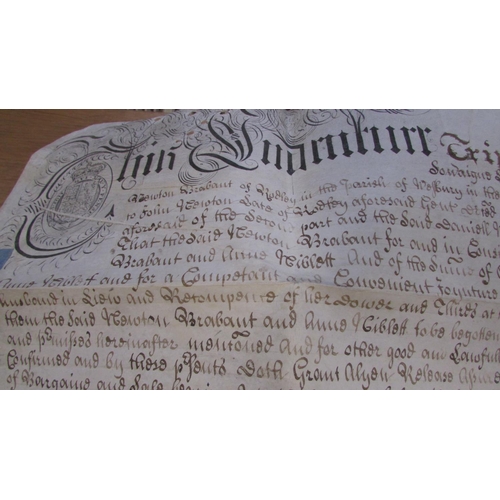 This Indenture Tri
Sovraigne
Newton Brabant of Redley in the Parish of in the
to John Newton Late of Redley aforesaid Gent
aforesaid of the Second part and the said Daniell
That the said Newton Brabant for and in
Brabant and Anne Niblett And of the Sume of
Anne Niblett and for a Competant and Convenient Joynture
husband in Liew and Recompence of her Dower and Thirds at
them the said Newton Brabant and Anne Niblett to be begotten
and p'mises hereinafter menconed and for other good and Lawfull
Confirmed and by these p'sents Doth Grant Alyen Release
of Bargaine and Sale